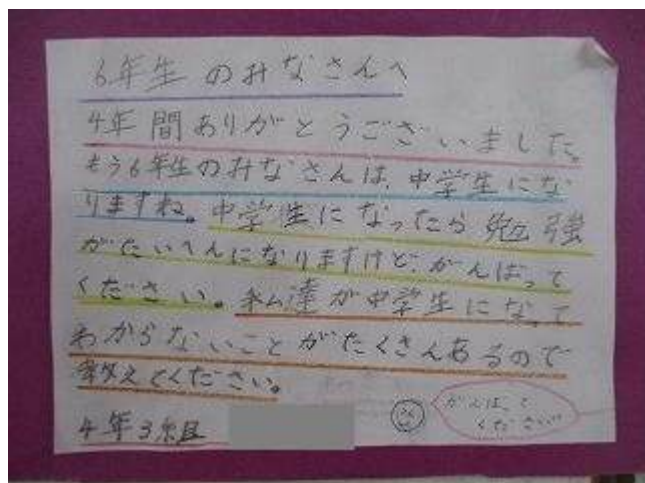 6年生のみなさんへ
4年間ありがとうございました。
もう6年生のみなさんは、中学生にな
りますね。中学生になったら勉強
がたいへんになりますけど、がんばって
ください。私達が中学生になって
わからないことがたくさんあるので
教えてください。
4年3組
がんばって
ください!!